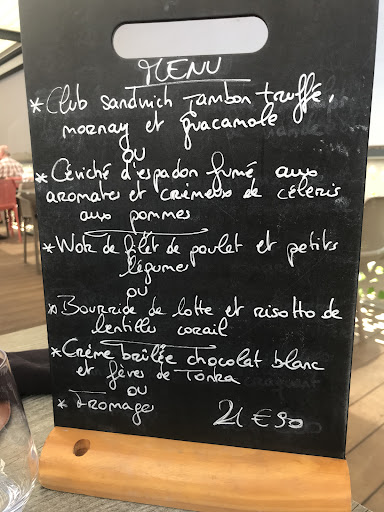 MENU
* Club sandwich Jambon truffé,
mornay et guacamole
ou
* Céviché d'espadon fumé aux
aromates et crémeux de céleris
aux pommes
* Wok de filet de poulet et petits
légumes
ou
* Bourride de lotte et risotto de
lentilles corail
* Crème brûlée chocolat blanc
et fèves de Tonka
ou
* Fromage
21 € 90